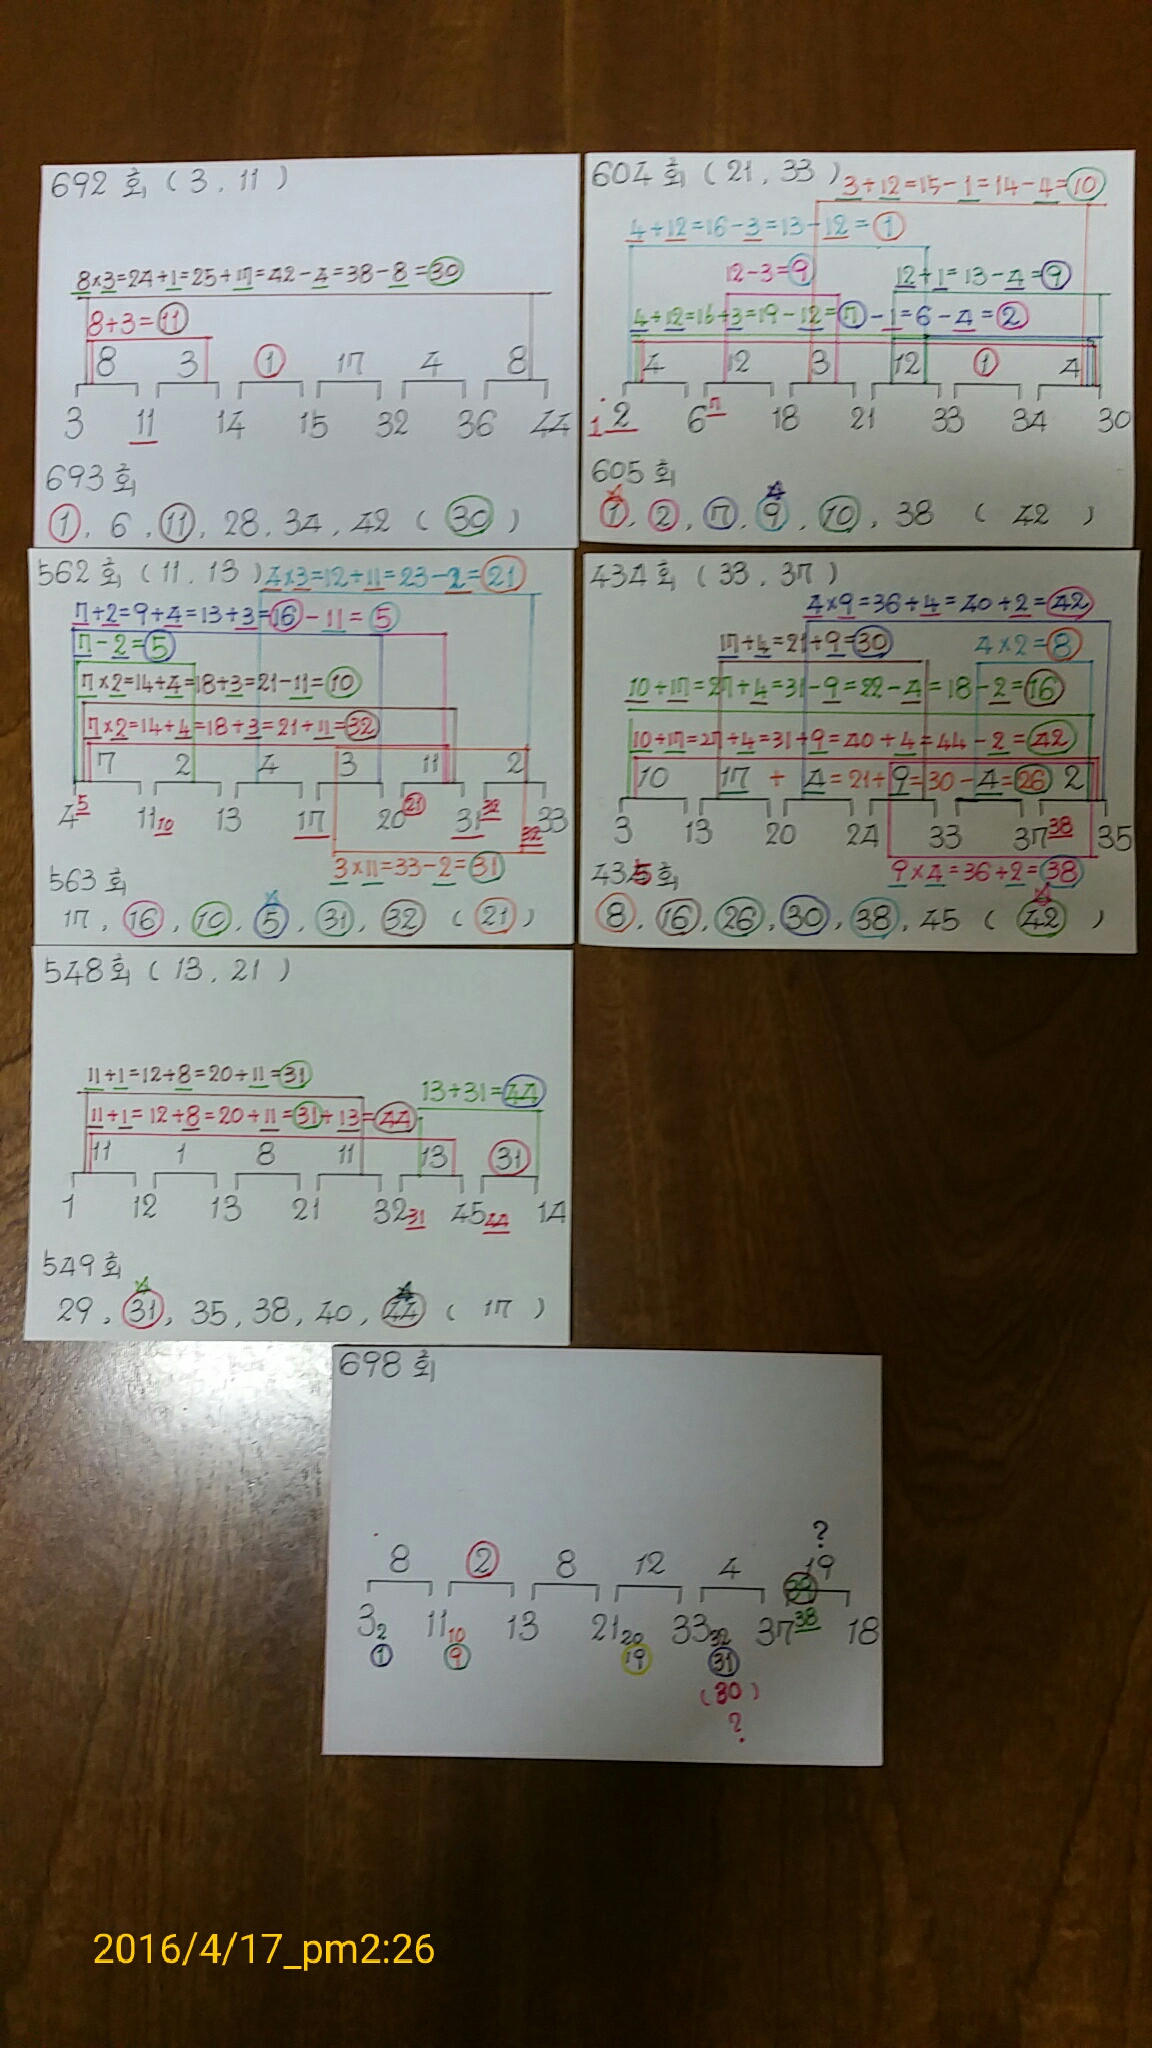 692회 (3, 11)
8×3=24+1=25+17=42-4=38-8=30
8+3=11
8 3 1 17 4 8
3 11 14 15 32 36 44
693회
1, 6, 11, 28, 34, 42 (30)
604회 (21, 33)
3+12=15-1=14-4=10
4+12=16-3=13-12=1
12-3=9
12+1=13-4=9
4+12=16+3=19-12=7-1=6-4=2
4 12 3 12 1 4
1 2 6 7 18 21 33 34 30
605회
1, 2, 7, 9, 10, 38 (42)
562회 (11, 13)
4×3=12+11=23-2=21
7+2=9+4=13+3=16-11=5
7-2=5
7×2=14+4=18+3=21-11=10
7×2=14+4=18+3=21+11=32
7 2 4 3 11 2
4 5 11 10 13 17 20 21 31 32 32 33
3×11=33-2=31
563회
17, 16, 10, 5, 31, 32 (21)
434회 (33, 37)
4×9=36+4=40+2=42
17+4=21+9=30
4×2=8
10+17=27+4=31-9=22-4=18-2=16
10+17=27+4=31+9=40+4=44-2=42
10 17 + 4=21+9=30-4=26 2
3 13 20 24 33 37 38 35
9×4=36+2=38
435회
8, 16, 26, 30, 38, 45 (42)
548회 (13, 21)
11+1=12+8=20+11=31
13+31=44
11+1=12+8=20+11=31+13=44
11 1 8 11 13 31
1 12 13 21 32 31 45 44 14
549회
29, 31, 35, 38, 40, 44 (17)
698회
?
8 2 8 12 4 19
3 2 11 10 13 21 20 33 32 37 38 18
1 9 19 31
(30)
?
2016/4/17_pm2:26